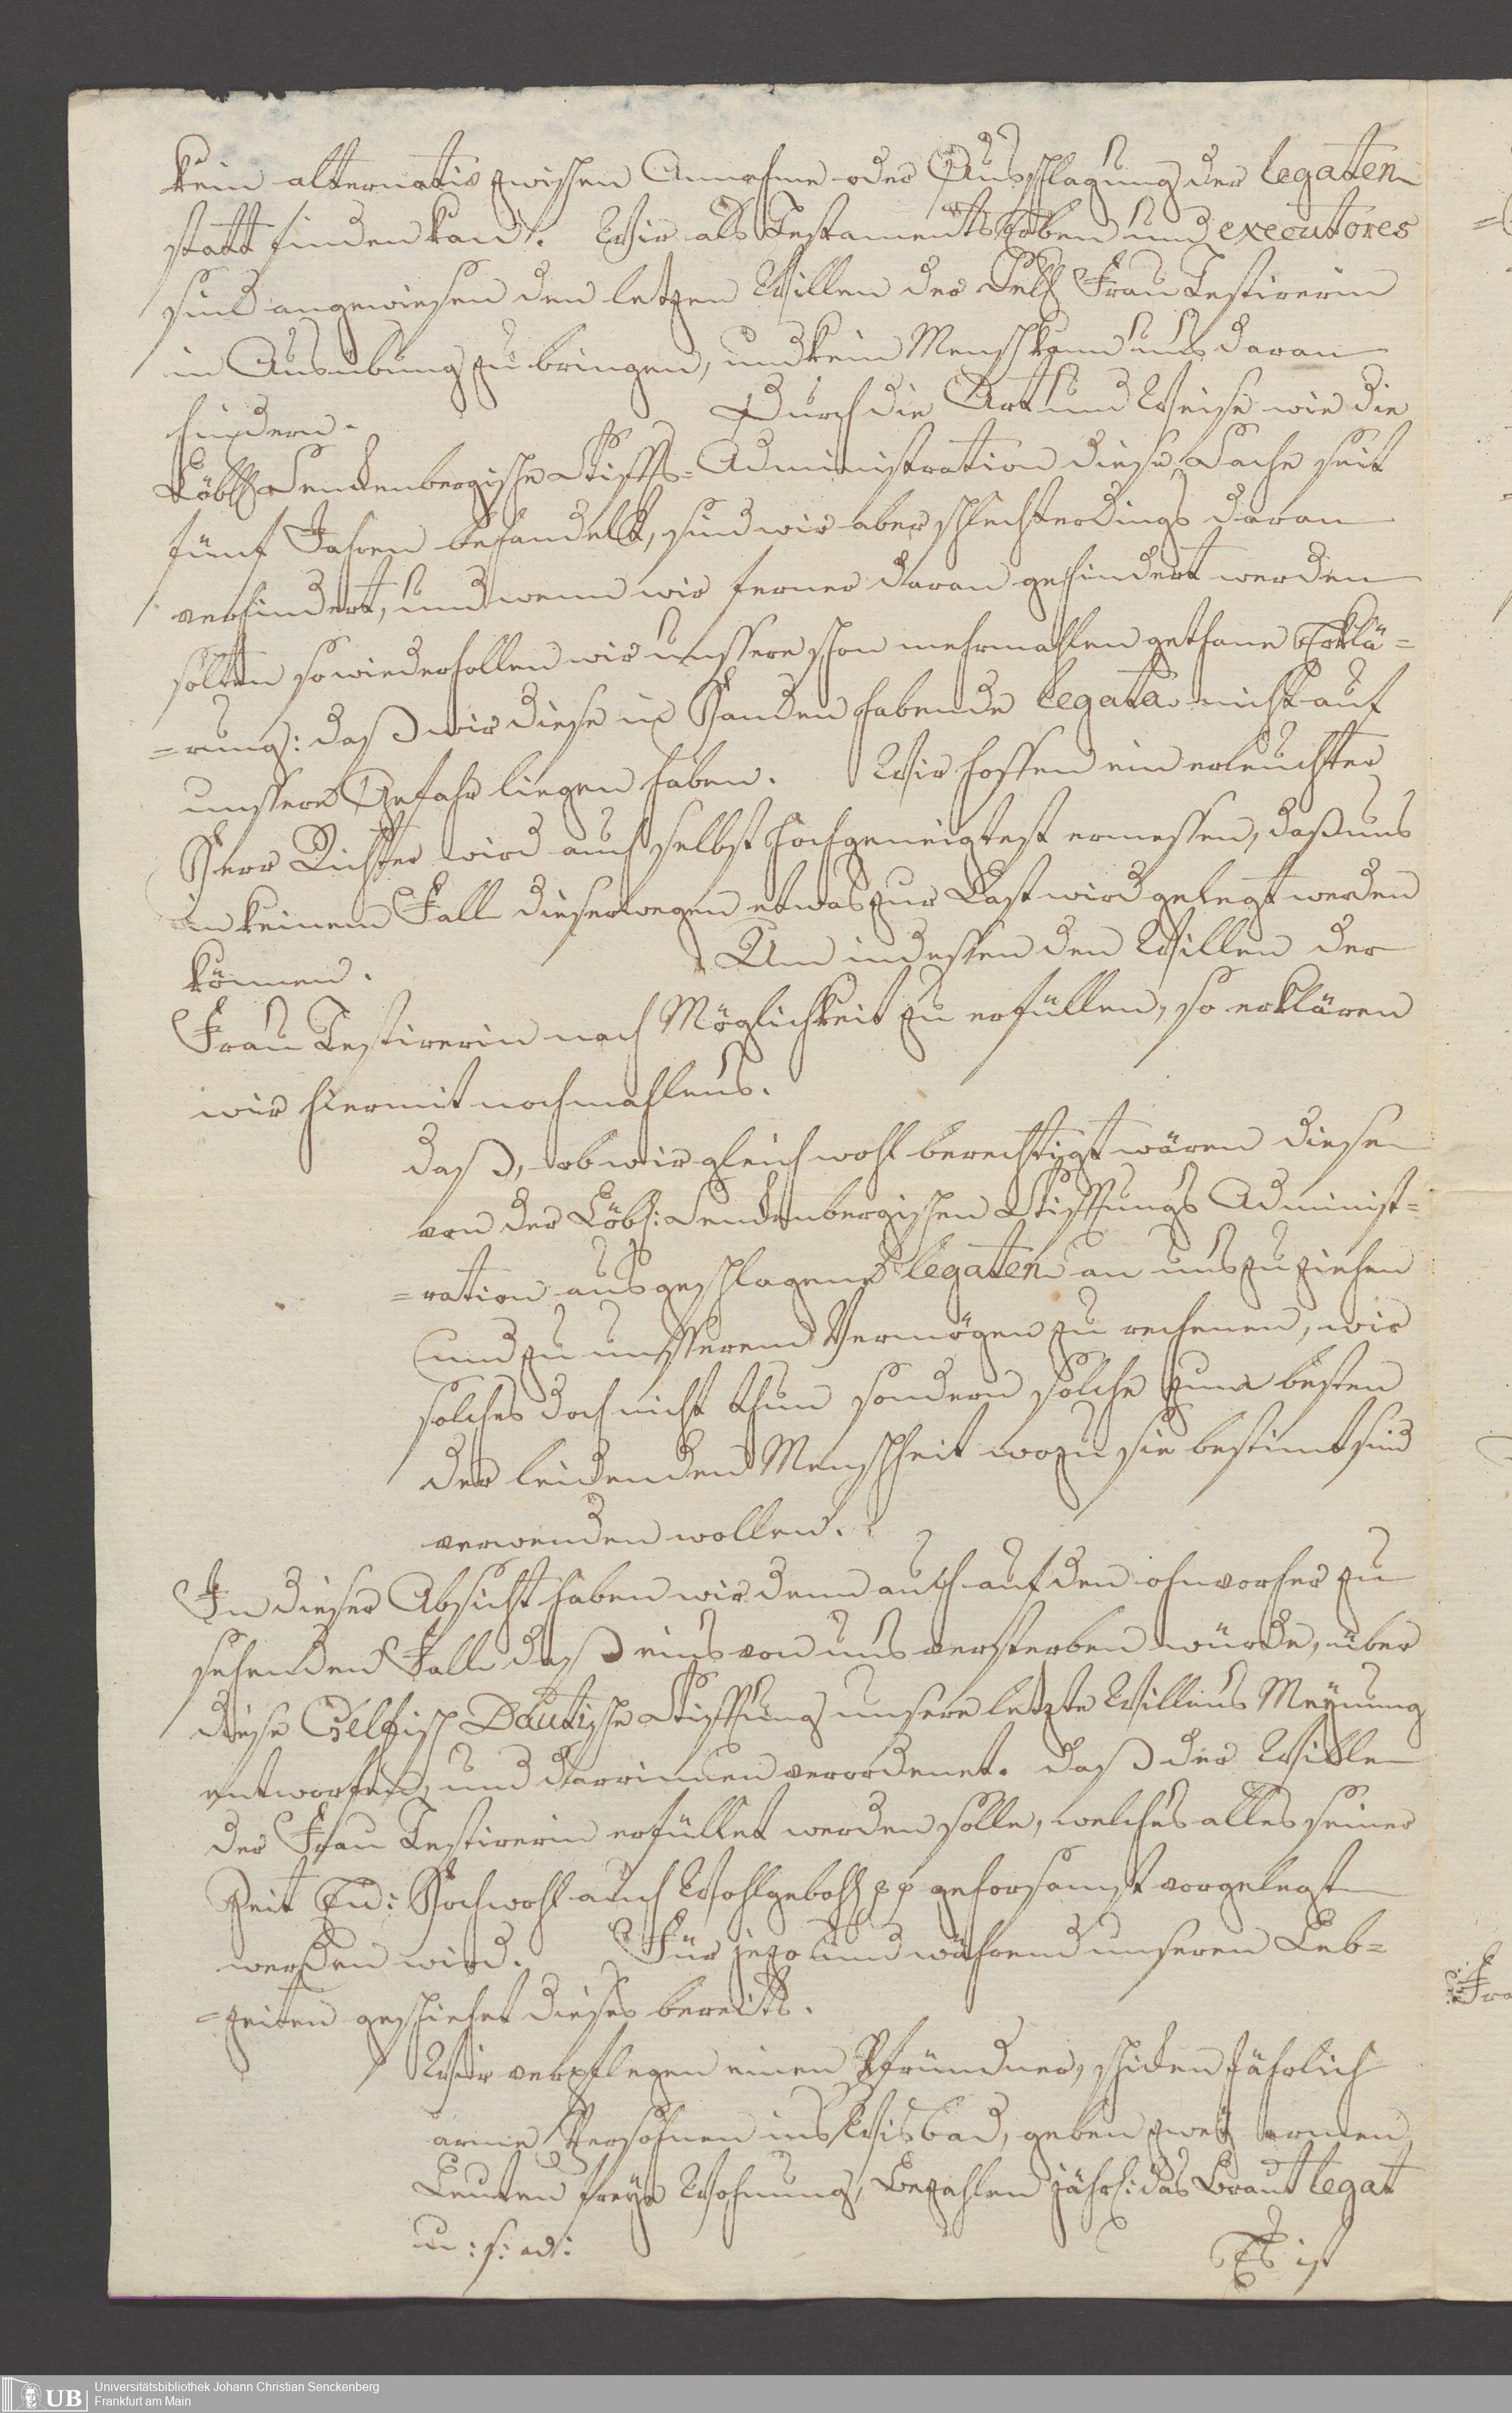 kein alternativ zwischen Annahme oder Ausschlagung der legaten
statt finden kan. Wir als Testaments Erben und executores
sind angewiesen den letzen Willen der Seel Frau Testirerin
in Ausübung zu bringen, und kein Mensch kann uns daran
hindern. Durch die Art und Weise wie die
Löbl Senckenbergische Stiffts-Administration diese Sache seit
fünf Jahren behandelt, sind wir aber schlechterdings daran
verhindert, und wenn wir ferner daran gehindert werden
solten so wiederhollen wir unssere schon mehrmahlen gethane Erklä=
=rung: daß wir diese in Handen habende legata nicht auf
unssere Gefahr liegen haben. Wir hoffen ein erleuchter
Herr Richter wird auch selbst hochgeneigtest ermessen, daß uns
in keinem Fall dieserwegen etwas zur Last wird gelegt werden
können. Um indessen den Willen der
Frau Testirerin nach Möglichkeit zu erfüllen, so erklären
wir hiermit nochmahlens.
daß, ob wir gleich wohl berechtigt wären diese
von der Löbl: Senckenbergischen Stifftungs Administ=
=ration ausgeschlagene legaten an uns zu ziehen
und zu unsserem Vermögen zu rechenen, wir
solches doch nicht thun sondern solche zum besten
der leidenden Menschheit wozu sie bestimt sind
verwenden wollen.
In dieser Absicht haben wir denn auch auf den ohnvorher zu
sehenden Fall daß eins von uns versterben würde, über
diese Gelfisch Dautische Stifftung unsere letzte Willens Meynung
entworfen, und darrinnen verordenet. daß der Wille
der Frau Testirerin erfüllet werden solle, welches alles seiner
Zeit Ew: Hochwohl auch Wohlgebohl pp gehorsamst vorgelegt
werden wird. Für jezo und während unseren Leb=
=zeiten geschiehet dieses bereits.
Wir verpflegen einen Pfründner, schiken Jährlich
arme Persohnen ins Wisbad, geben zwey armen
Leuten freye Wohnung, Bezahlen jährl: das Braut legat
u: s: w:
Es ist
Fra
UB
Universitätsbibliothek Johann Christian Senckenberg
Frankfurt am Main